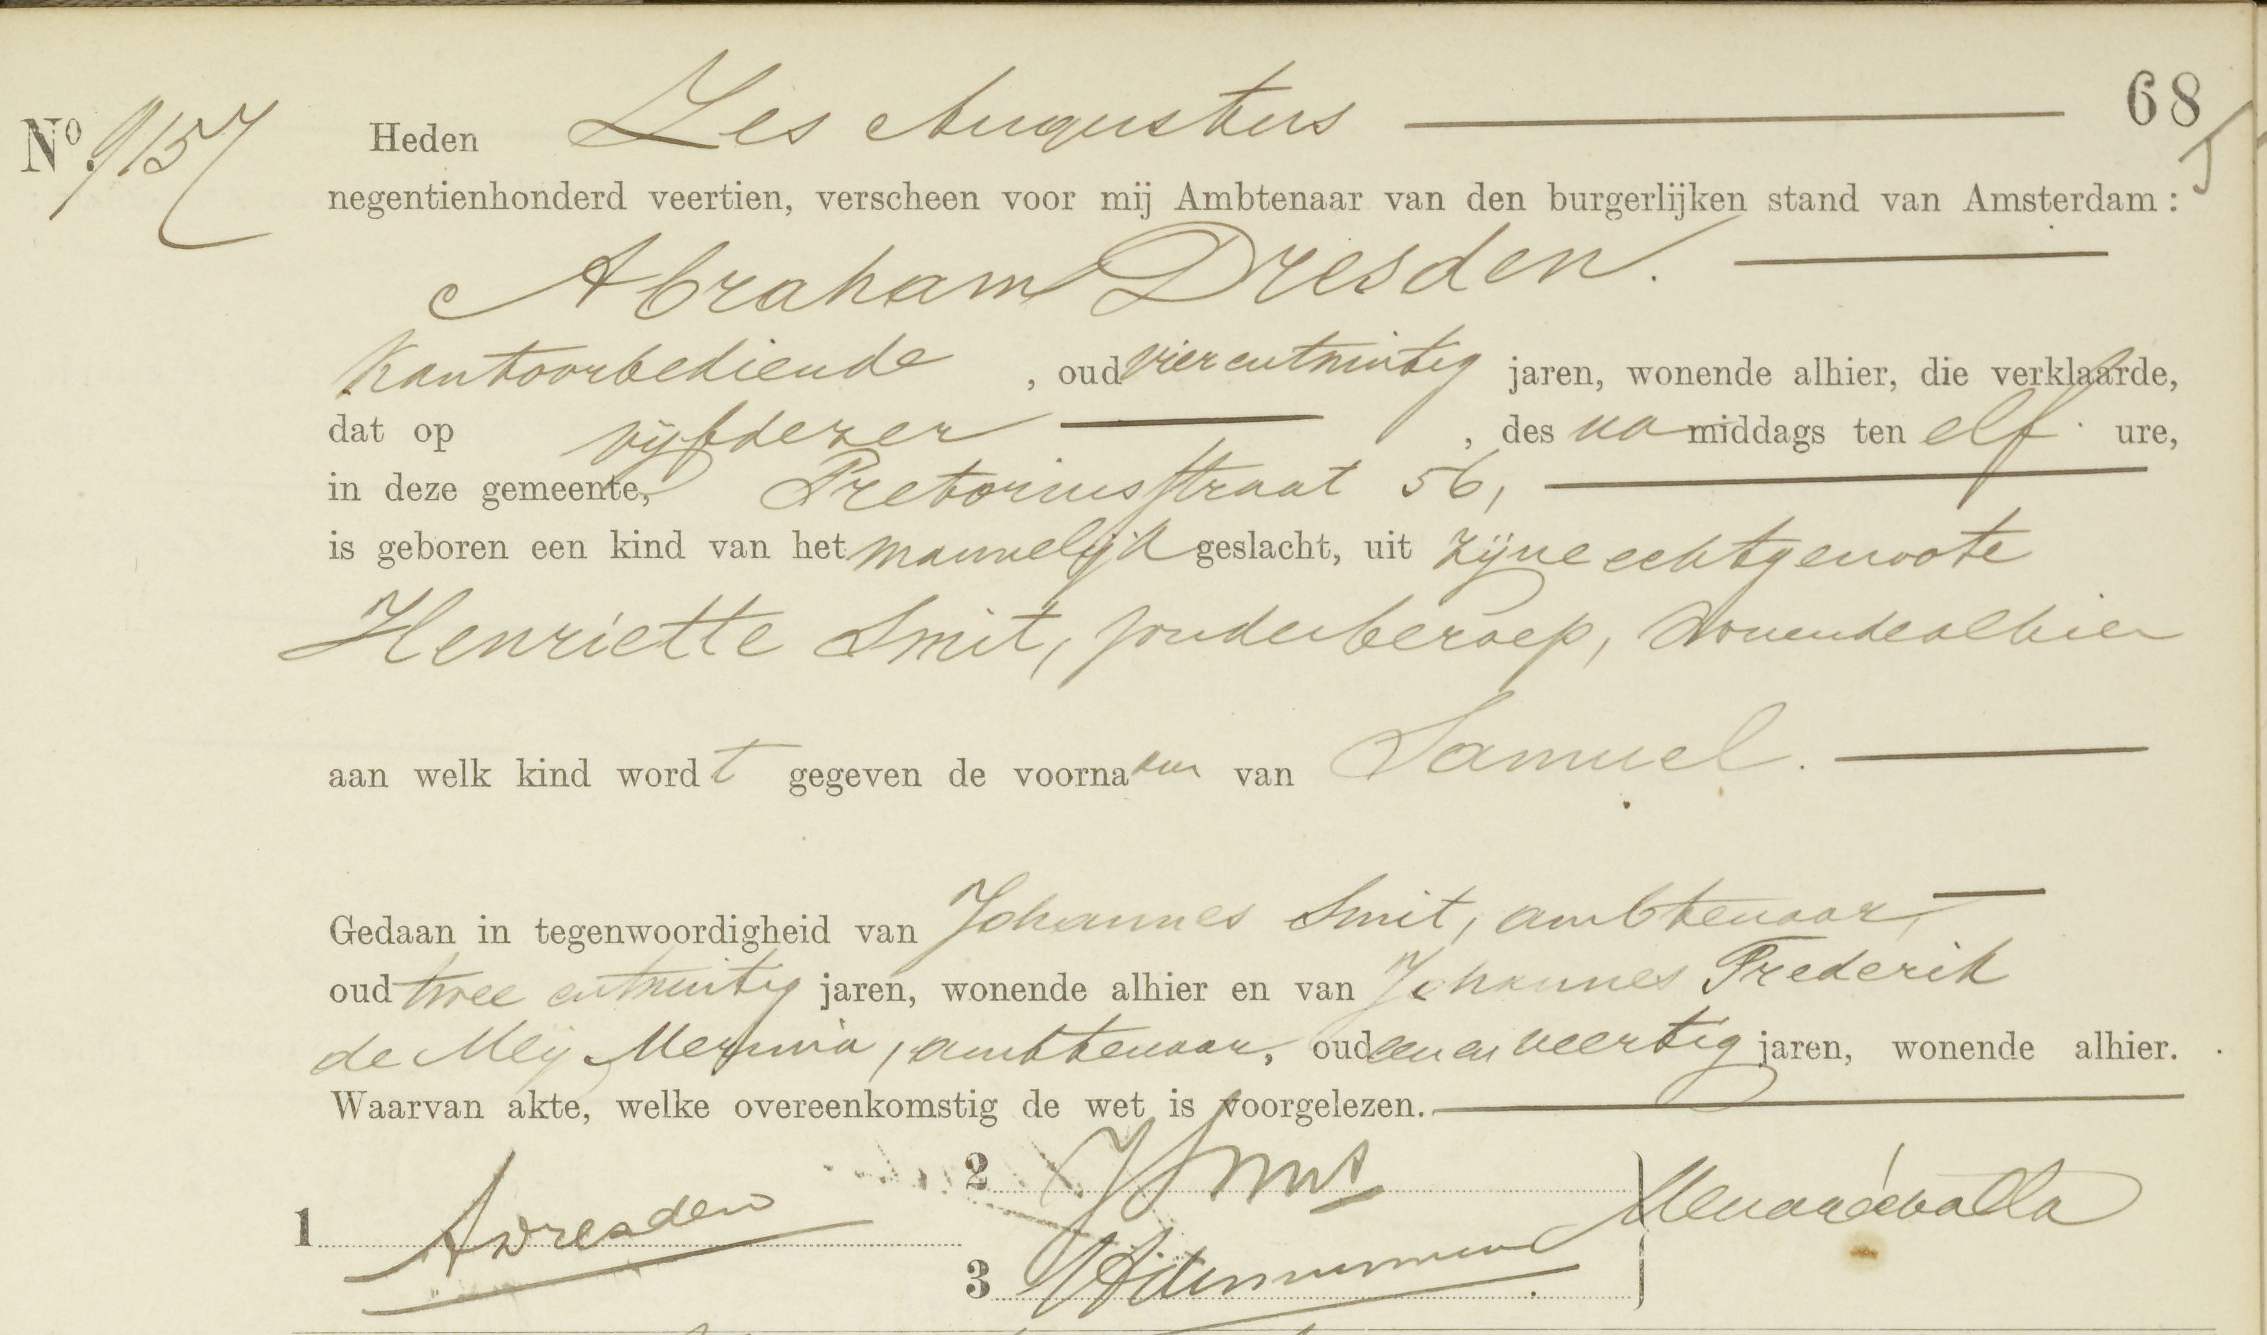 68
Nº. 9157 Heden Zes Augustus
negentienhonderd veertien, verscheen voor mij Ambtenaar van den burgerlijken stand van Amsterdam:
Abraham Dresden.
Kantoorbediende, oud vierentwintig jaren, wonende alhier, die verklaarde,
dat op vijfdezer, des namiddags ten elf ure,
in deze gemeente, Pretoriusstraat 56,
is geboren een kind van het mannelijk geslacht, uit zijne echtgenoote
Henriette Smit, zonder beroep, wonende alhier
aan welk kind wordt gegeven de voornaam van Samuel.
Gedaan in tegenwoordigheid van Johannes Smit, ambtenaar,
oud twee entwintig jaren, wonende alhier en van Johannes Frederik
de Meij, ambtenaar, oud een en veertig jaren, wonende alhier.
Waarvan akte, welke overeenkomstig de wet is voorgelezen.
1 ADresden
2 JSmit
3